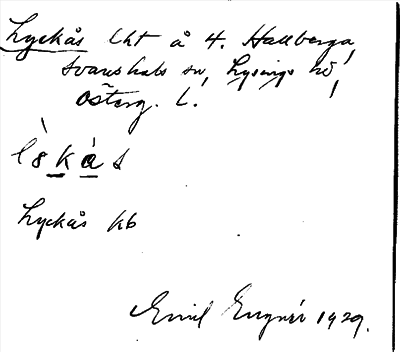 Lyckås lht å 4. Hallberga,
Svanshals sn, Lysings hd,
Österg. L.
Lyckås kb
Emil 1929.